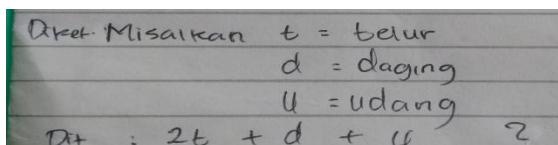 Diket. Misalkan t = telur
d = daging
u = udang
Dit : 2t + d + u ?